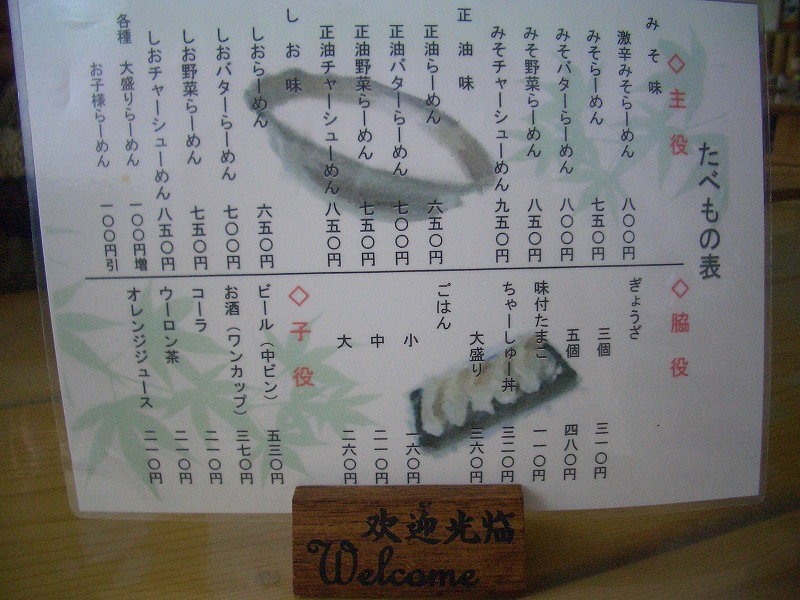 たべもの表
◇主役
みそ味
激辛みそらーめん 八〇〇円
みそらーめん 七五〇円
みそバターらーめん 八〇〇円
みそ野菜らーめん 八五〇円
みそチャーシューめん 九五〇円
正油味
正油らーめん 六五〇円
正油バターらーめん 七〇〇円
正油野菜らーめん 七五〇円
正油チャーシューめん 八五〇円
しお味
しおらーめん 六五〇円
しおバターらーめん 七〇〇円
しお野菜らーめん 七五〇円
しおチャーシューめん 八五〇円
各種 大盛りらーめん 一〇〇円増
お子様らーめん 一〇〇円引
◇脇役
ぎょうざ
三個 三一〇円
五個 四八〇円
味付たまご 一一〇円
ちゃーしゅー丼 三二〇円
大盛り 三六〇円
ごはん
小 一六〇円
中 二一〇円
大 二六〇円
◇子役
ビール（中ビン） 五三〇円
お酒（ワンカップ） 三七〇円
コーラ 二一〇円
ウーロン茶 二一〇円
オレンジジュース 二一〇円
欢迎光临
Welcome